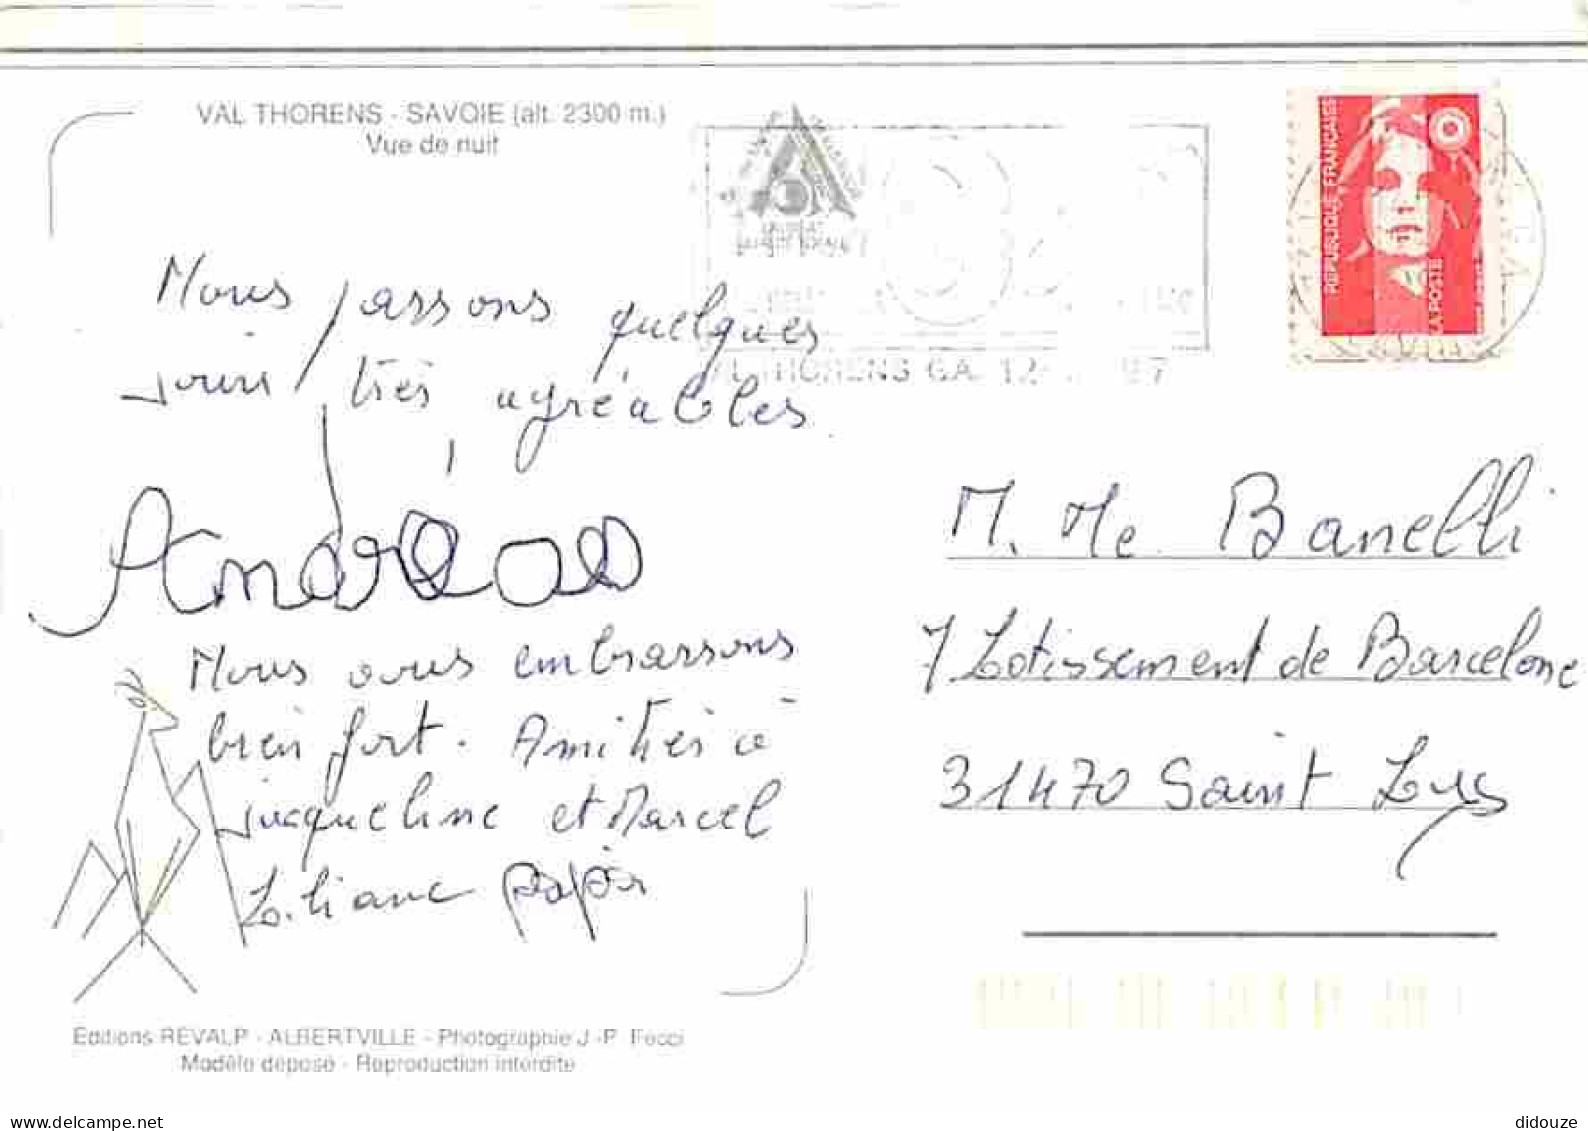 VAL THORENS - SAVOIE (alt. 2300 m.)
Vue de nuit
REPUBLIQUE FRANÇAISE
LA POSTE
VAL THORENS C.A. 12
97
Nous passons quelques
jours très agréables
Andréas
Nous vous embrassons
bien fort. Amitiés à
Jacqueline et Marcel
Liliane papi
M. Me Banelli
7 Lotissement de Barcelone
31470 Saint Lys
Editions REVALP - ALBERTVILLE - Photographie J.-P. Fecci
Modèle déposé - Reproduction interdite
www.delcampe.net
didouze